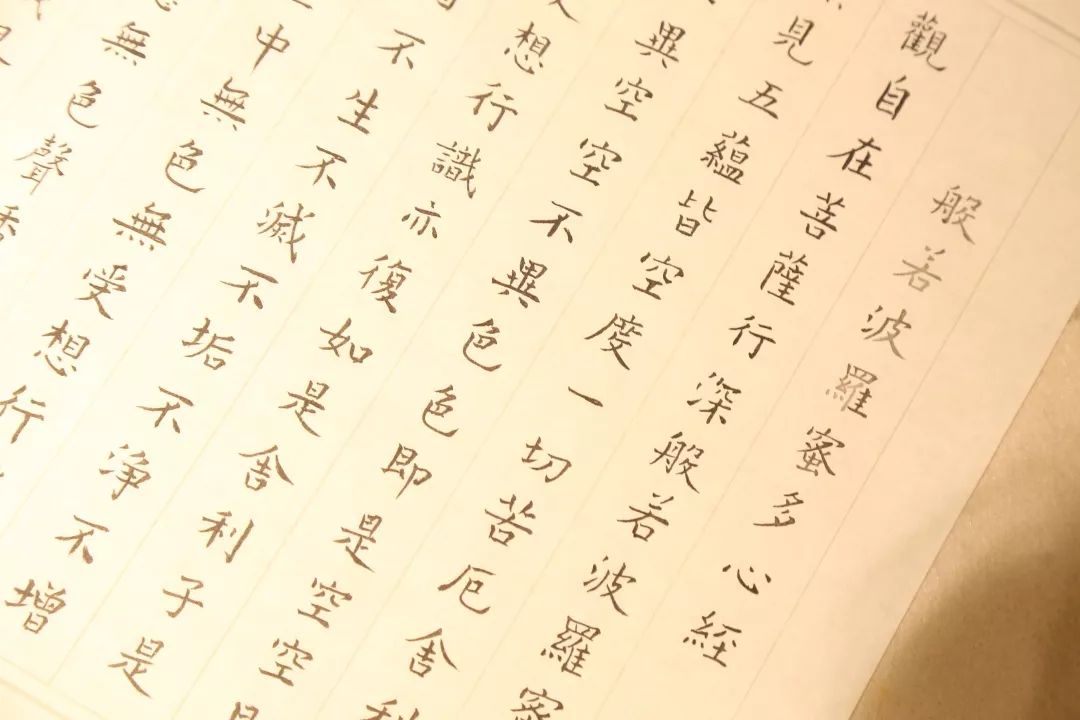 般若波羅蜜多心經
觀自在菩薩行深般若波羅蜜
見五蘊皆空度一切苦厄舍利
異空空不異色色即是空空即
想行識亦復如是舍利子是
不生不滅不垢不淨不增
中無色無受想行
無色聲香